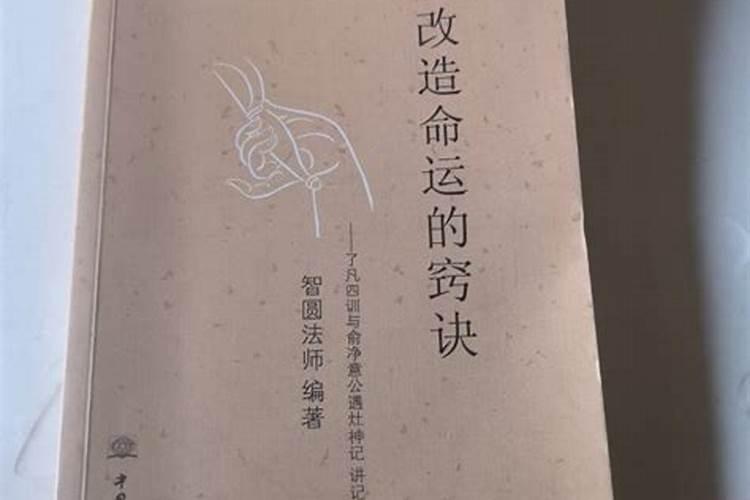 改造命运的窍诀
——了凡四训与俞净意公遇灶神记 讲记
智圆法师 编著
中